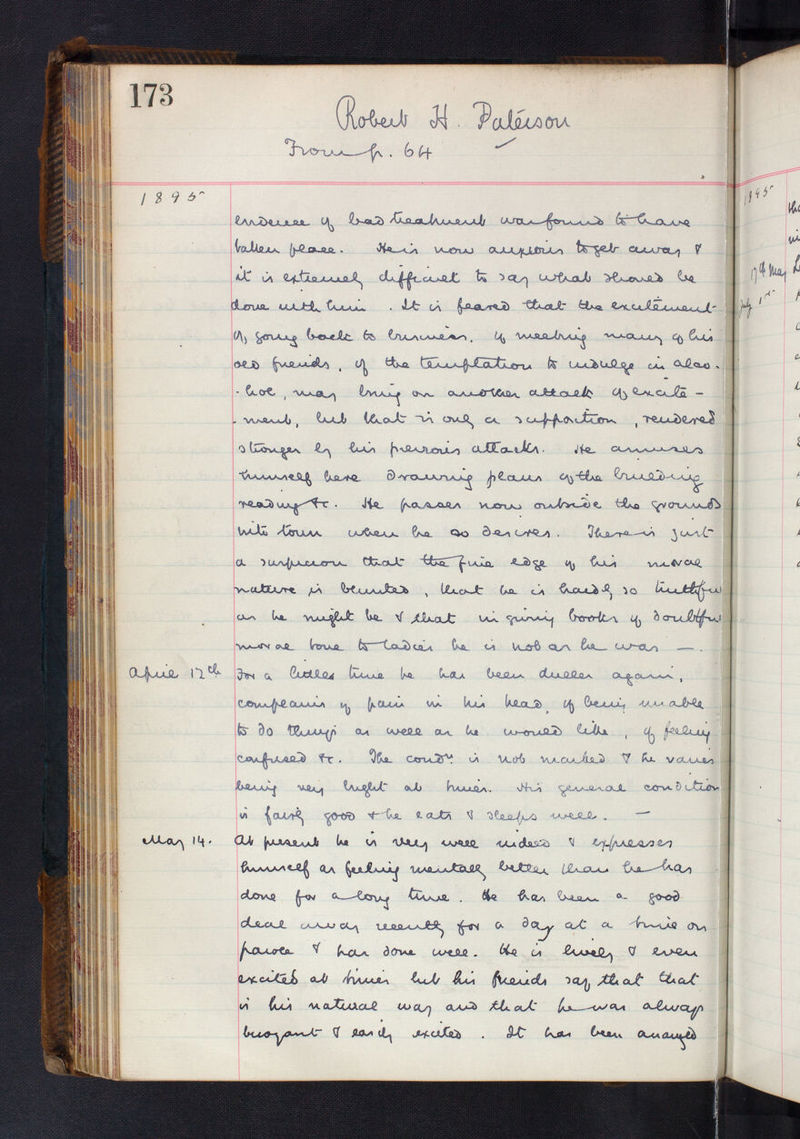 173
Robert H. Paterson
From p. 64
1895
evidence of bad treatment was found to have
taken place. He is now anxious to get away &
it is extremely difficult to say what should be
done with him. It is feared that the excitement
of going back to business, of meeting many of his
old friends, of the temptation to indulge in alco-
-hol, may bring on another attack of excite-
-ment, but that is only a supposition, rendered
stronger by his previous attacks. He amuses
himself here drawing plans of the building
reading &c. He passes now outside the grounds
into town when he so desires. There is just
a suspicion that the fine edge of his moral
nature is blunted, that he is hardly so truthful
as he might be & that in giving books of doubtful
moral tone to ladies he is not as he was —.
April 12th For a little time he has been duller again,
complains of pain in his head, of being unable
to do things as well as he would like, of feeling
confused &c. The condn. is not marked & he varies
being very bright at times. His general condition
is fairly good & he eats & sleeps well. —
May 14. At present he is very well indeed & expresses
himself as feeling mentally better than he has
done for a long time. He has been a good
deal away recently for a day at a time on
parole & has done well. He is lively & even
excited at times but his friends say that that
is his natural way and that he was always
buoyant & easily excited. It has been arranged
1895
17th May
July 1st